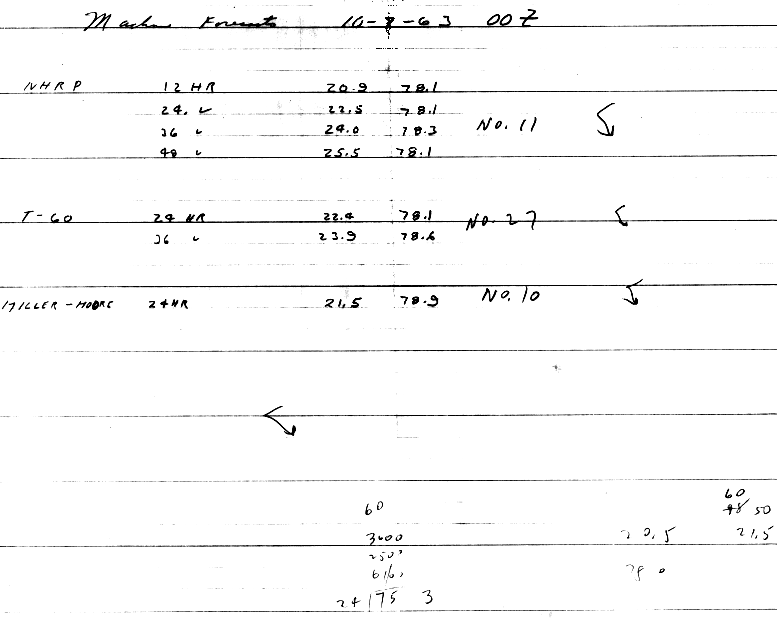 Machine Forecasts 10-7-63 00Z
NHRP 12 HR 20.9 78.1
24 " 22.5 78.1
36 " 24.0 78.3 No. 11
48 " 25.5 78.1
T-60 24 HR 22.4 78.1 No. 27
36 " 23.9 78.6
MILLER-MOORE 24HR 21.5 78.9 No. 10
60
60
48/50
3600 20.5 21.5
250
616
24 175 3